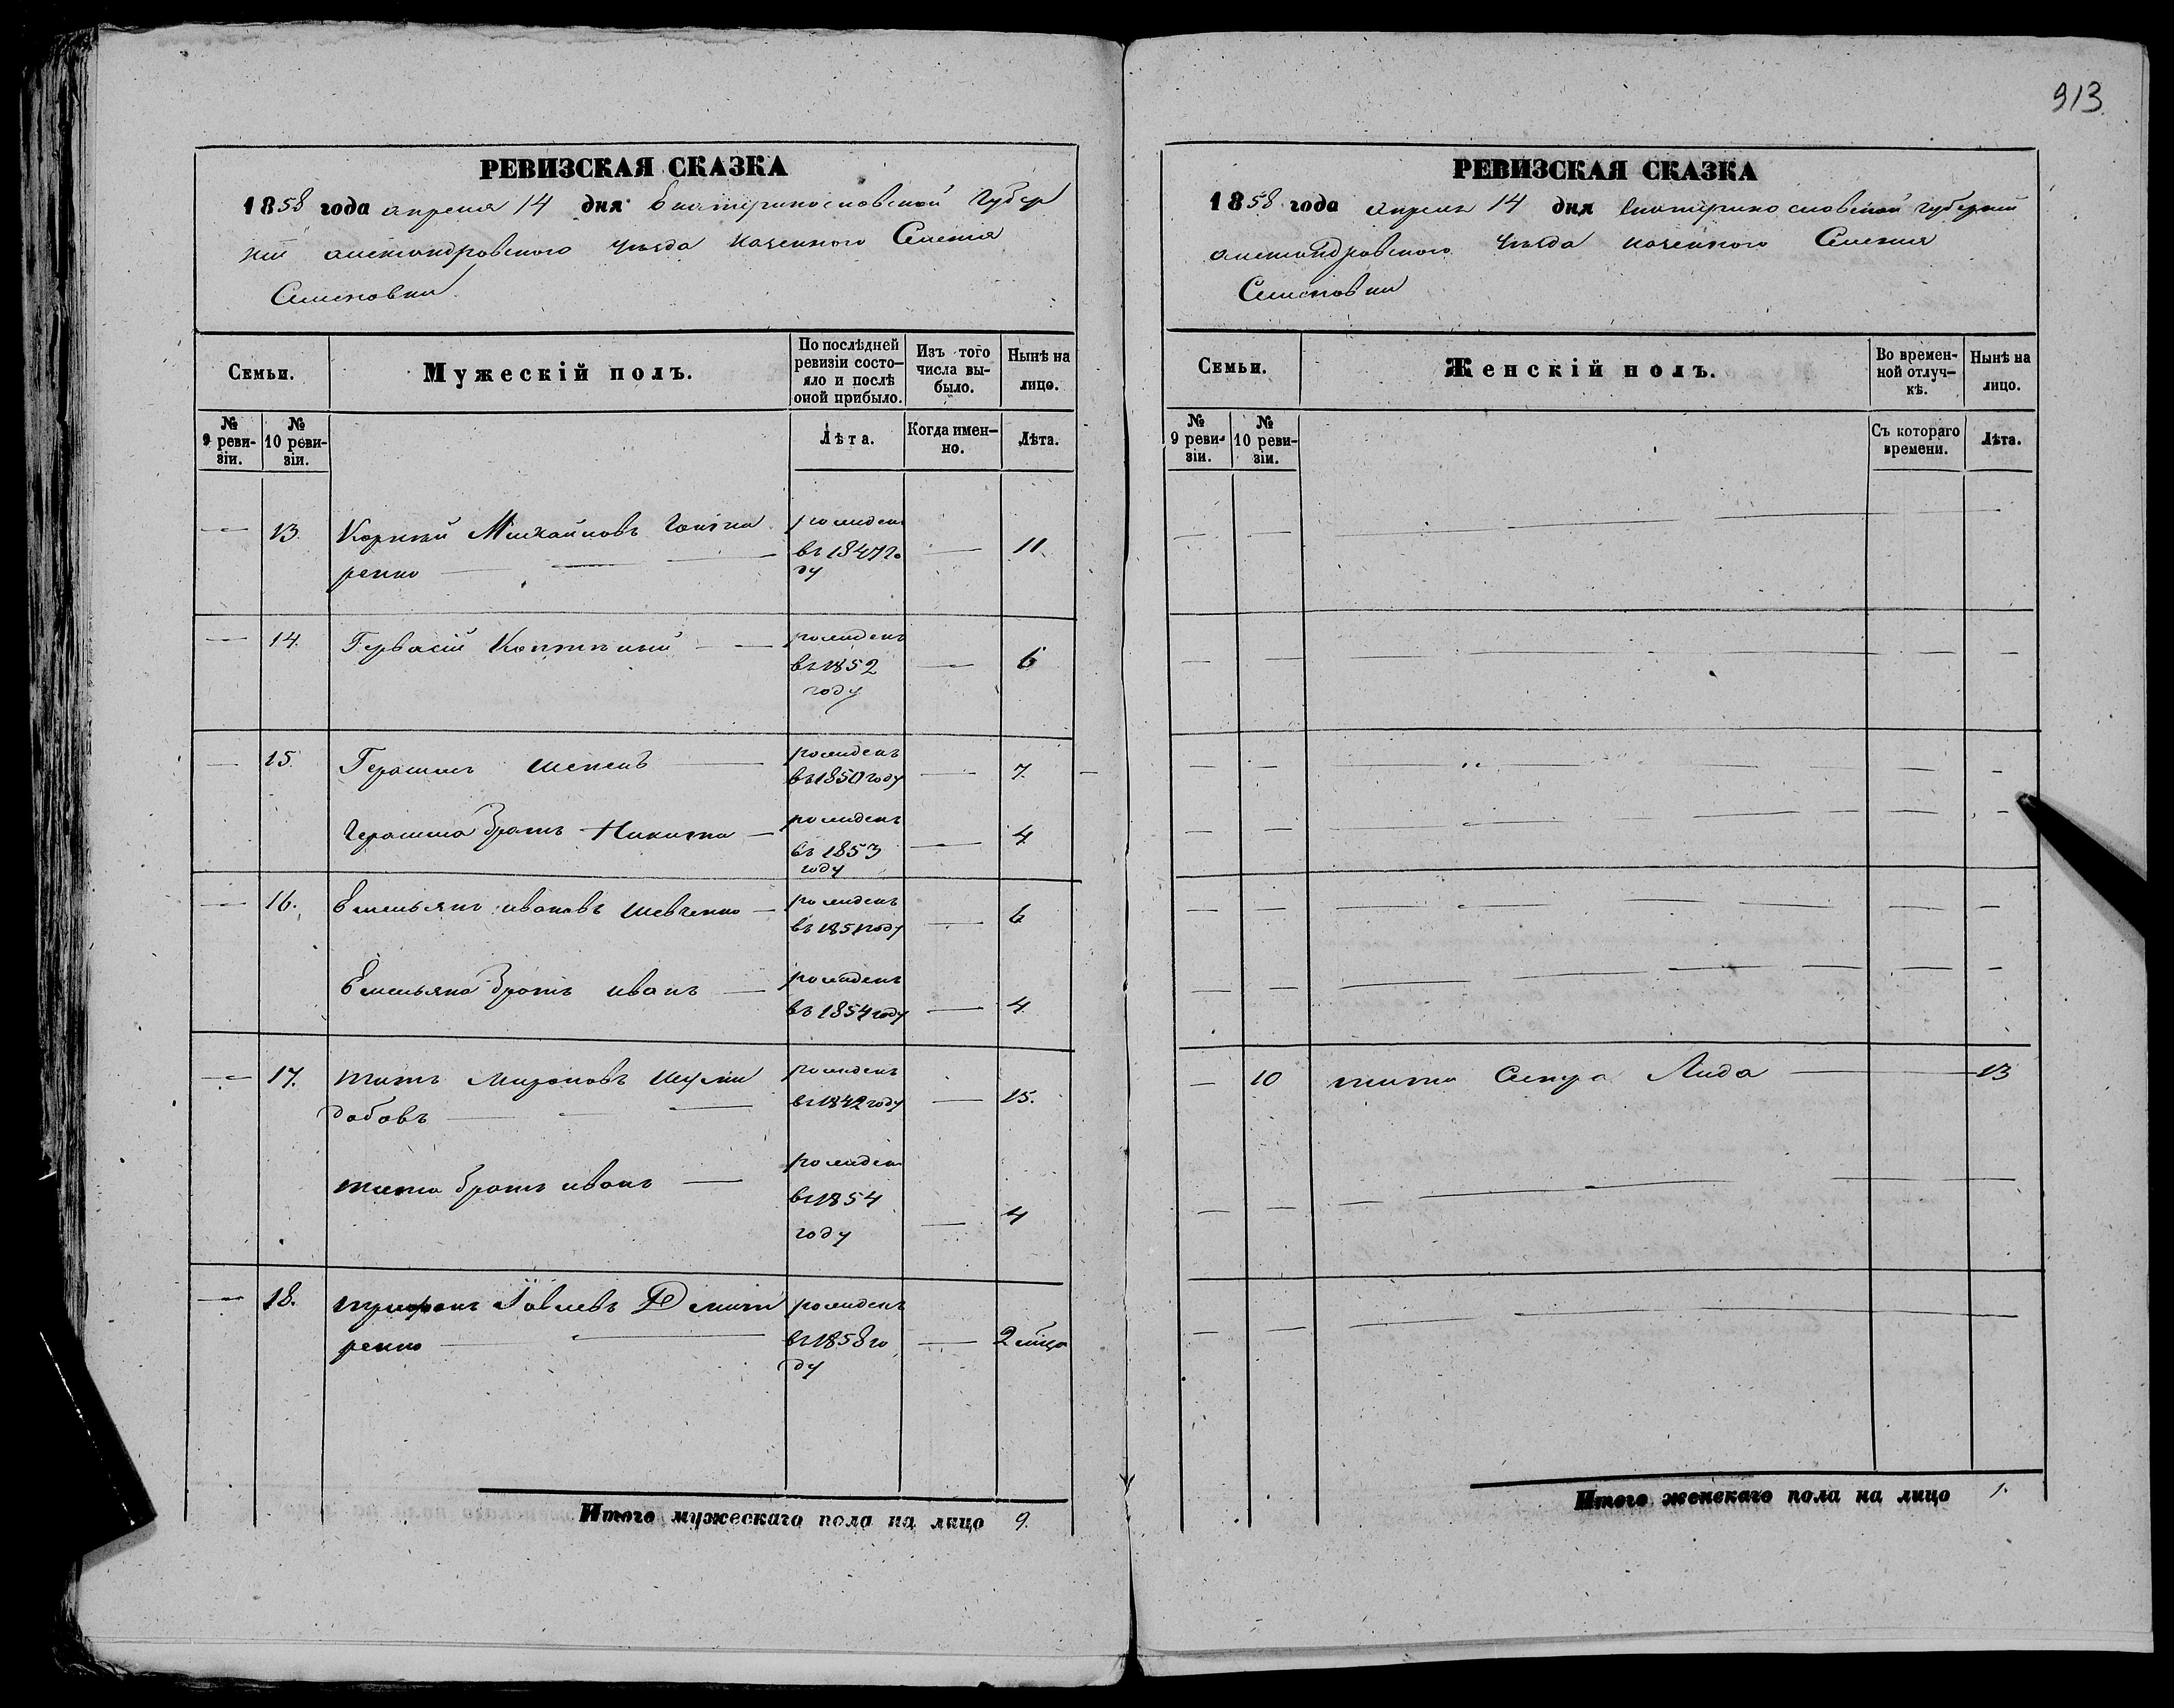 913.
РЕВИЗСКАЯ СКАЗКА
1858 года апреля 14 дня Екатеринославской Губер
нии александровского Уезда казенного Селения
Семеновки
Семьи.
Мужескій полъ.
По послѣдней ревизіи состо-яло и послѣ оной прибыло.
Изъ того числа вы-было.
Нынѣ на лицо.
№ 9 реви-зіи.
№ 10 реви-зіи.
Лѣта.
Когда имен-но.
Лѣта.
13. Корнѣй Михайловъ
ренко
рожденъ
въ 1847 го
ду
11.
14. Гервасій
рожденъ
въ 1852
году
6
15. Герасимъ
рожденъ
въ 1850 году
7.
Герасима братъ Никита
рожденъ
въ 1853
году
4
16. Емельянъ ивановъ шевченко
рожденъ
въ 1851 году
6
Емельяна братъ иванъ
рожденъ
въ 1854 году
4
17. титъ мироновъ
рожденъ
въ 1842 году
15.
тита братъ иванъ
рожден
въ 1854
году
4
18. трифонъ
ренко
рожденъ
въ 1858 го
ду
2 мѣца
Итого мужескаго пола на лицо 9.
РЕВИЗСКАЯ СКАЗКА
1858 года апреля 14 дня Екатеринославской губернии
александровского Уезда казенного Селения
Семеновки
Семьи.
Женскій полъ.
Во времен-ной отлуч-кѣ.
Нынѣ на лицо.
№ 9 реви-зіи.
№ 10 реви-зіи.
Съ котораго времени.
Лѣта.
10 тита Сестра Лида 13
Итого женскаго пола на лицо 1.